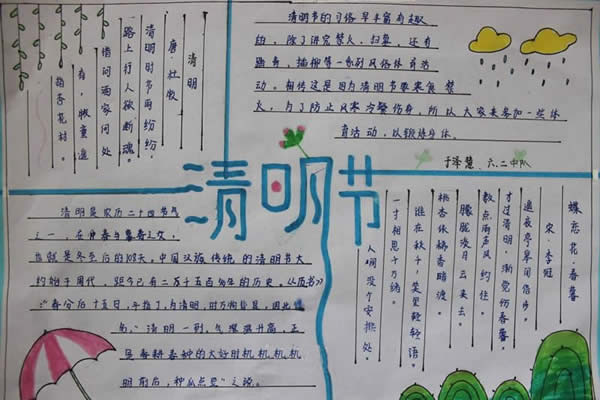 清明
唐.杜牧
清明时节雨纷纷，
路上行人欲断魂。
借问酒家何处
有，牧童遥
指杏花村。
清明节的习俗是丰富有趣
的，除了讲究禁火、扫墓，还有
踏青、插柳等一系列风俗体育活
动。相传这是因为清明节要寒食禁
火，为了防止风寒冷餐伤身，所以大家来参加一些体
育活动，以锻炼身体。
于泽慧 六.二中队
清明节
清明是农历二十四节气
之一，在仲春与暮春之交，
也就是冬至后的108天，中国汉族传统的清明节大
约始于周代，距今已有二千五百多年的历史。《历书》
“春分后十五日，斗指丁，为清明，时万物皆显，因此得
名。”清明一到，气温升高，正
是春耕春种的大好时机机机机
明前后，种瓜点豆”之说。
蝶恋花·春暮
宋·李冠
遥夜亭皋闲信步，
才过清明，渐觉伤春暮。
数点雨声风约住，
朦胧淡月云来去。
桃杏依稀香暗渡。
谁在秋千，笑里轻轻语。
一寸相思千万绪。
人间没个安排处。